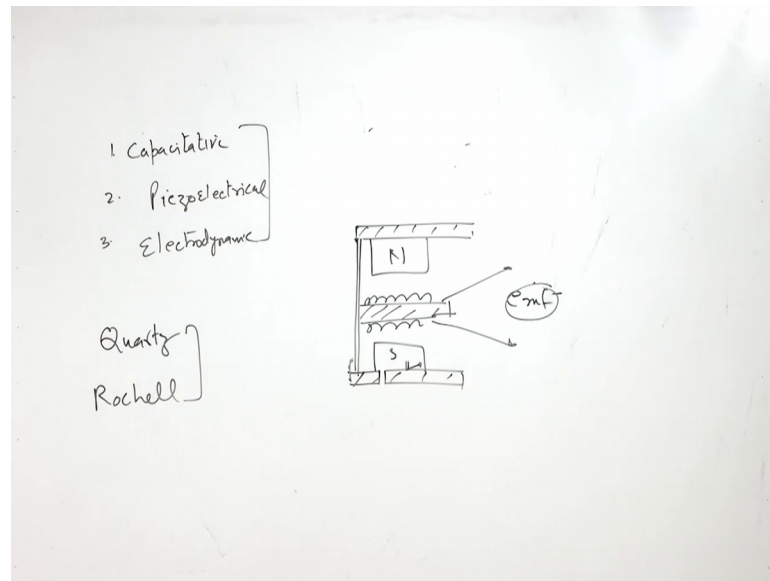 1. Capacitative
2. Piezoelectrical
3. Electrodynamic
N
emf
S
Quartz
Rochell